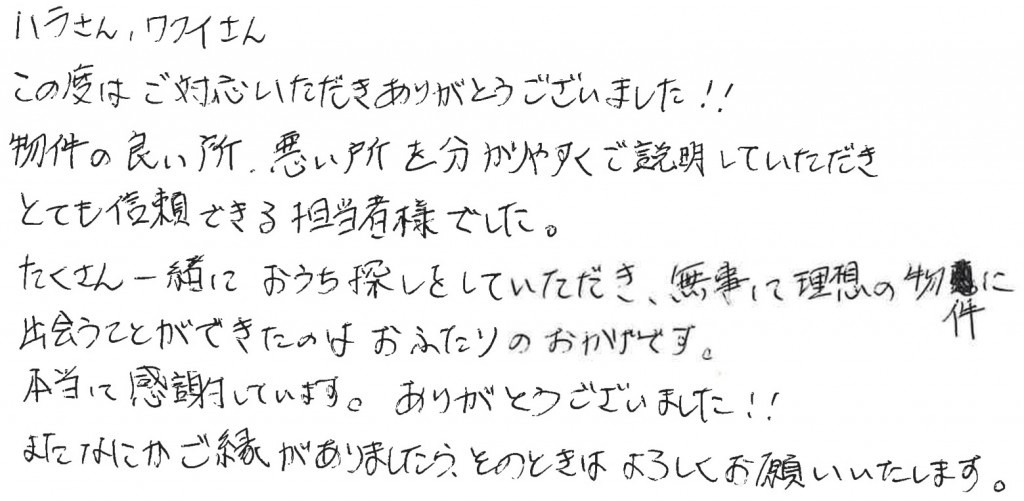 ハラさん、ワクイさん
この度はご対応いただきありがとうございました!!
物件の良い所、悪い所を分かりやすくご説明していただき
とても信頼できる担当者様でした。
たくさん一緒におうち探しをしていただき、無事に理想の物件に
出会うことができたのはおふたりのおかげです。
本当に感謝しています。ありがとうございました!!
またなにかご縁がありましたら、そのときはよろしくお願いいたします。